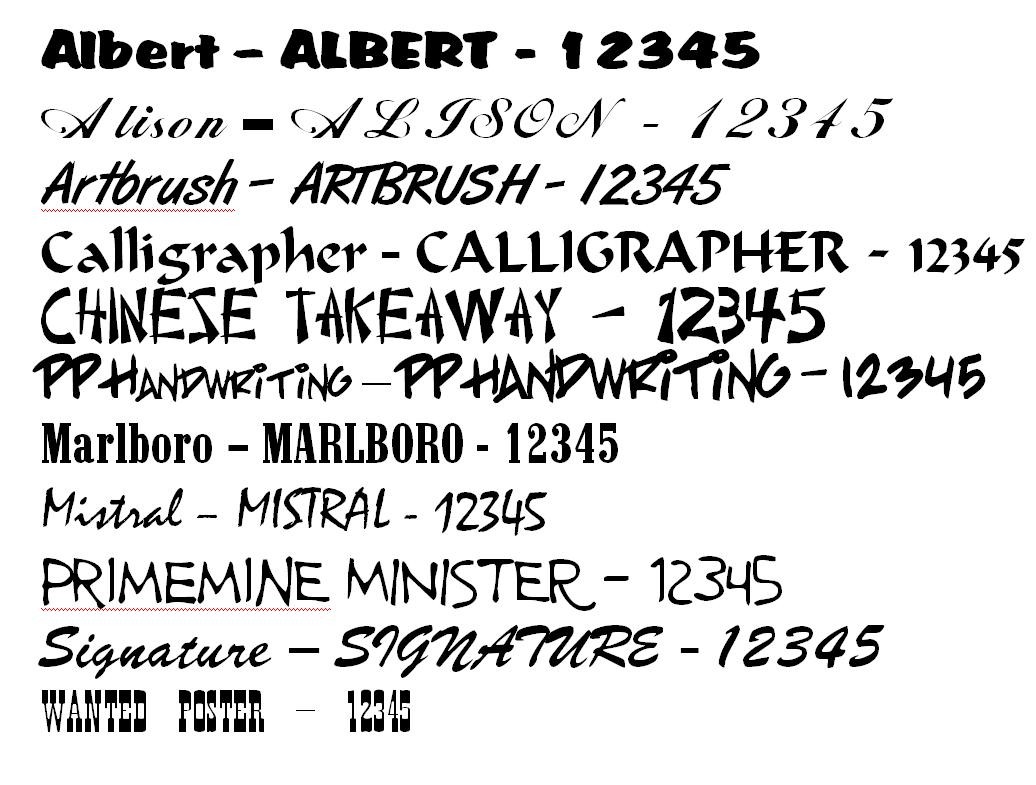 Albert – ALBERT - 12345
Alison – ALISON - 12345
Artbrush – ARTBRUSH - 12345
Calligrapher - CALLIGRAPHER - 12345
CHINESE TAKEAWAY – 12345
PP HANDWRiTiNG – PP HANDWRiTiNG – 12345
Marlboro – MARLBORO - 12345
Mistral – MISTRAL - 12345
PRIMEMINE MINISTER – 12345
Signature – SIGNATURE - 12345
WANTED POSTER – 12345